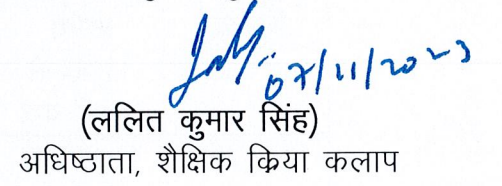 07/11/2023
(ललित कुमार सिंह)
अधिष्ठाता, शैक्षिक क्रिया कलाप